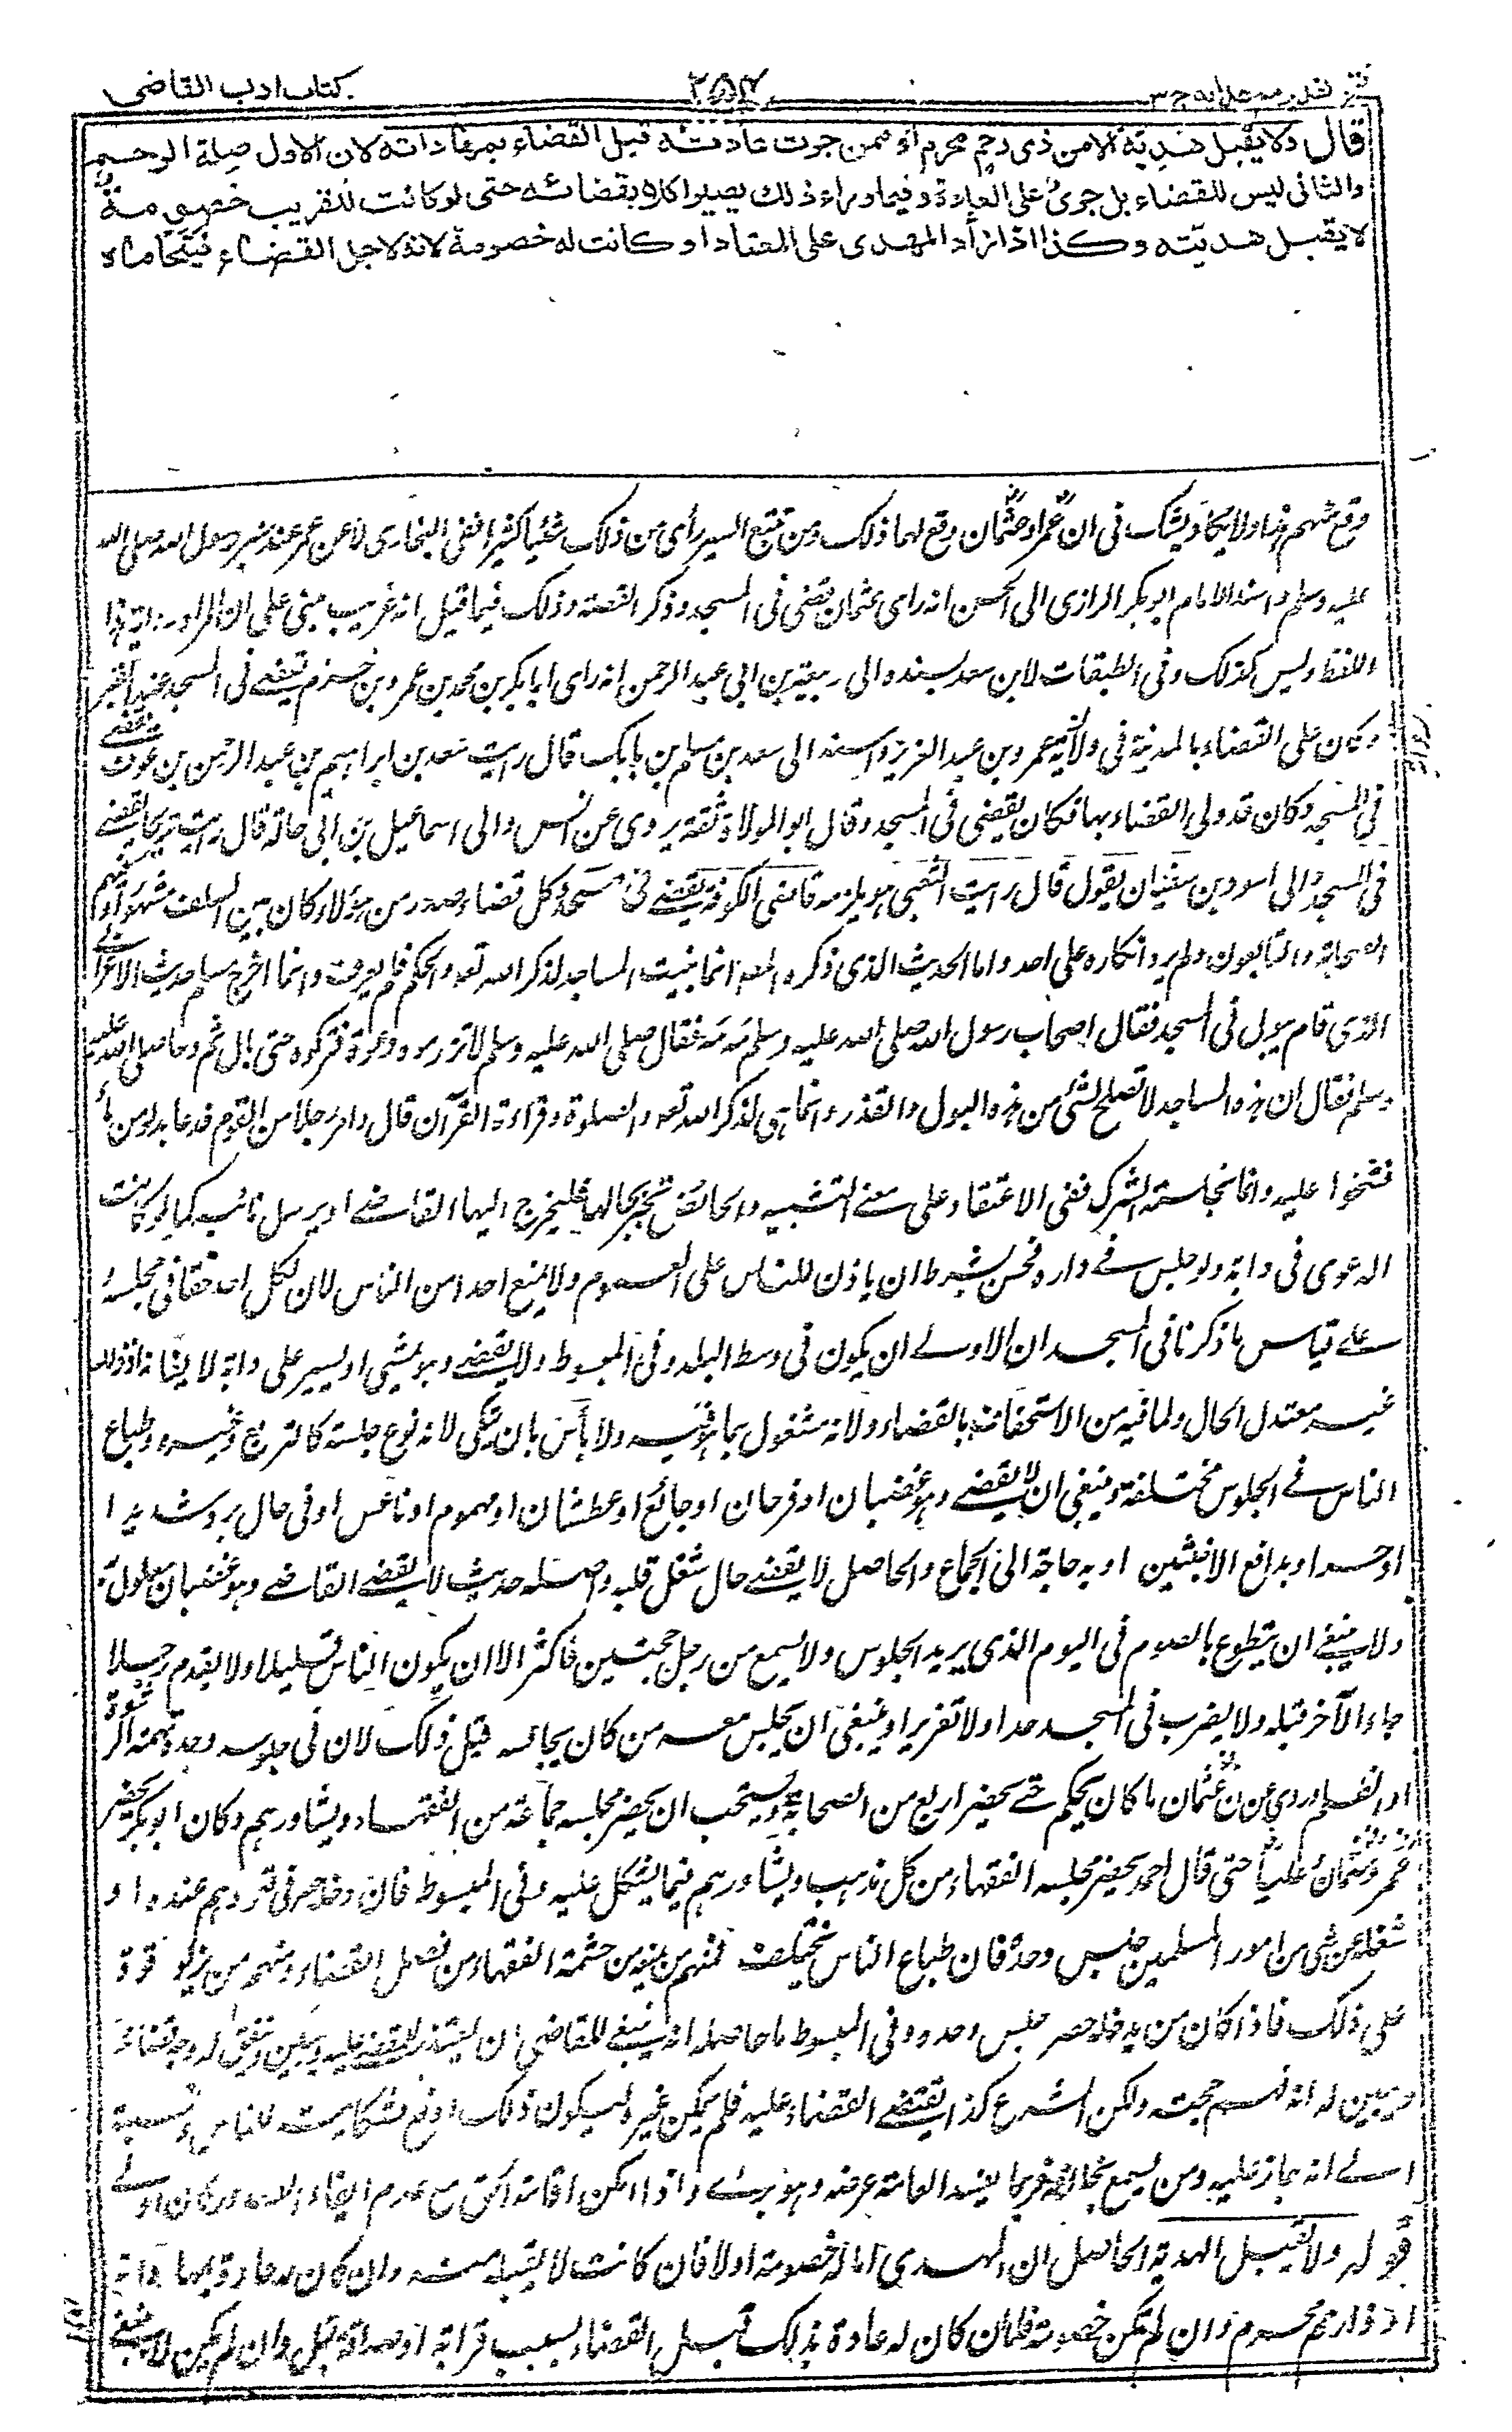 فتح القدير مع هدايه ج ٣
٢٥٢
كتاب ادب القاضى
قال ولا يقبل هدية الا من ذى رحم محرم او ممن جرت عادته قبل القضاء بمهاداته لان الاول صلة الرحم
والثانى ليس للقضاء بل جرى على العادة وفيما وراء ذلك يصير اكلا بقضائه حتى لو كانت للقريب خصومة
لا يقبل هديته وكذا اذا زاد المهدى على المعتاد او كانت له خصومة لانه لاجل القضاء فيتحاماه
وقع منهم هذا ولا يكاد يشك فى ان عمر وعثمان وقع لهما ذلك ومن تتبع السير رأى من ذلك شيئا كثيرا ففى البخارى لاعن عمر عند منبر رسول الله صلى الله
عليه وسلم واسند الامام ابو بكر الرازى الى الحسن انه راى عثمان قضى فى المسجد وذكر القصة وذلك فيما قيل انه غريب مبنى على ان المراد رواية هذا
اللفظ وليس كذلك وفى الطبقات لابن سعد بسنده الى ربيعة بن ابى عبد الرحمن انه راى ابا بكر بن محمد بن عمرو بن حزم يقضے فى المسجد عند القبر
وكان على القضاء بالمدينة فى ولاية عمر بن عبد العزيز واسند الى سعد بن مسلم بن بابك قال رايت سعد بن ابراہيم بن عبد الرحمن بن عوف يقضے
فى المسجد وكان قد ولى القضاء بها فكان يقضى فى المسجد وقال ابو المولاة ثقة يروى عن انس والى اسماعيل بن ابى خالد قال رايت شريحا يقضے
فى المسجد والى اسود بن سفيان يقول قال رايت الشعبى ہو يلزمه قاضى الكوفة يقضے فى مسجد وكل قضاء صدر من ہؤلاء كان بين السلف مشهورا وفيهم
الصحابة والتابعون ولم يرو انكاره على احد واما الحديث الذى ذكره المصـ انما بنيت المساجد لذكر الله تعـ والحكم فلم يعرف وانما اخرج مسلم حديث الاعرابے
الذى قام يبول فى المسجد فقال اصحاب رسول الله صلى الله عليه وسلم مه مه فقال صلى الله عليه وسلم لا تزرموه دعوه فتركوه حتى بال ثم دعا صلى الله عليه
وسلم فقال ان ہذه المساجد لا تصلح لشئ من ہذه البول والقذر وانما ہى لذكر الله تعـ والصلوة وقراءة القرآن قال وامر رجلا من القوم فدعا بدلو من ماء
فشخوا عليه واما نجاسة المشرك ففى الاعتقاد على معنے التشبيه والحائض تخبر بحالها فليخرج اليها القاضے او يرسل نائبه كما لو كانت
الدعوى فى دابة ولو جلس فے داره فحسن بشرط ان ياذن للناس على العموم ولا يمنع احدا من الناس لان لكل احد حقا فى مجلسه
علے قياس ما ذكرنا فى المسجد ان الاولے ان يكون فى وسط البلد وفى المبسوط ولا يقضے وہو يمشى او يسير على دابة لا يشا نه اذ ذلك
غير معتدل الحال ولما فيه من الاستخفاف بالقضاء ولانه مشغول بما ہو فيه ولا باس بان يتكى لانه نوع جلسة كالتربع وغيره وطباع
الناس فے الجلوس مختلفة وينبغى ان لا يقضے وہو غضبان او فرحان او جائع او عطشان او مهموم او ناعس او فى حال برد شديد ا
او حر او يدافع الاخبثين او به حاجة الى الجماع والحاصل لا يقضے حال شغل قلبه واصله حديث لا يقضے القاضے وہو غضبان معلول به
ولا ينبغے ان يتطوع بالصوم فى اليوم الذى يريد الجلوس ولا يسمع من رجل حجتين فاكثر الا ان يكون الناس قليلا ولا يقدم رجلا
جاء الآخر قبله ولا يضرب فى المسجد حدا ولا تعزيرا وينبغى ان يجلس معه من كان يجالسه قبل ذلك لان فى جلوسه وحده تهمة الرشوة
او الظلم وروى عن عثمان ما كان يحكم حتے يحضر اربع من الصحابة ويستحب ان يحضر مجلسه جماعة من الفقهاء ويشاورہم وكان ابو بكر يحضر
عمر وعثمان وعليا حتى قال احمد يحضر مجلسه الفقهاء من كل مذہب ويشاورہم فيما يشكل عليه وفى المبسوط فان دخله حصر فى قعودہم عنده او
شغله عن شئ من امور المسلمين جلس وحده فان طباع الناس تختلف فمنهم من يمنعه حشمة الفقهاء من فصل القضاء ومنهم من يزداد قوة
على ذلك فاذا كان ممن يدخله حصر جلس وحده وفى المبسوط ما حاصله انه ينبغے للقاضى ان يعتذر للمقضے عليه ويبين له وجه قضائه
ويبين له انه فهم حجته ولكن الشرع كذا يقتضے القضاء عليه فلم يمكن غيره ليكون ذلك ادفع لشكايته للناس ونسبته
الے انه جار عليه ومن يسمع يخل فربما تفسد العامة عرضه وہو برئے واذا امكن اقامة الحق مع عدم ايغار الصدور كان اولے
قوله ولا يقبل الهدية الحاصل ان المهدى اما له خصومة اولا فان كانت لا يقبل منه وان كان له عادة بمهاداته
او ذا رحم محرم وان لم تكن خصومة فان كان له عادة بذلك قبل القضاء بسبب قرابة او صداقة قبل وان لم يكن لا ينبغے